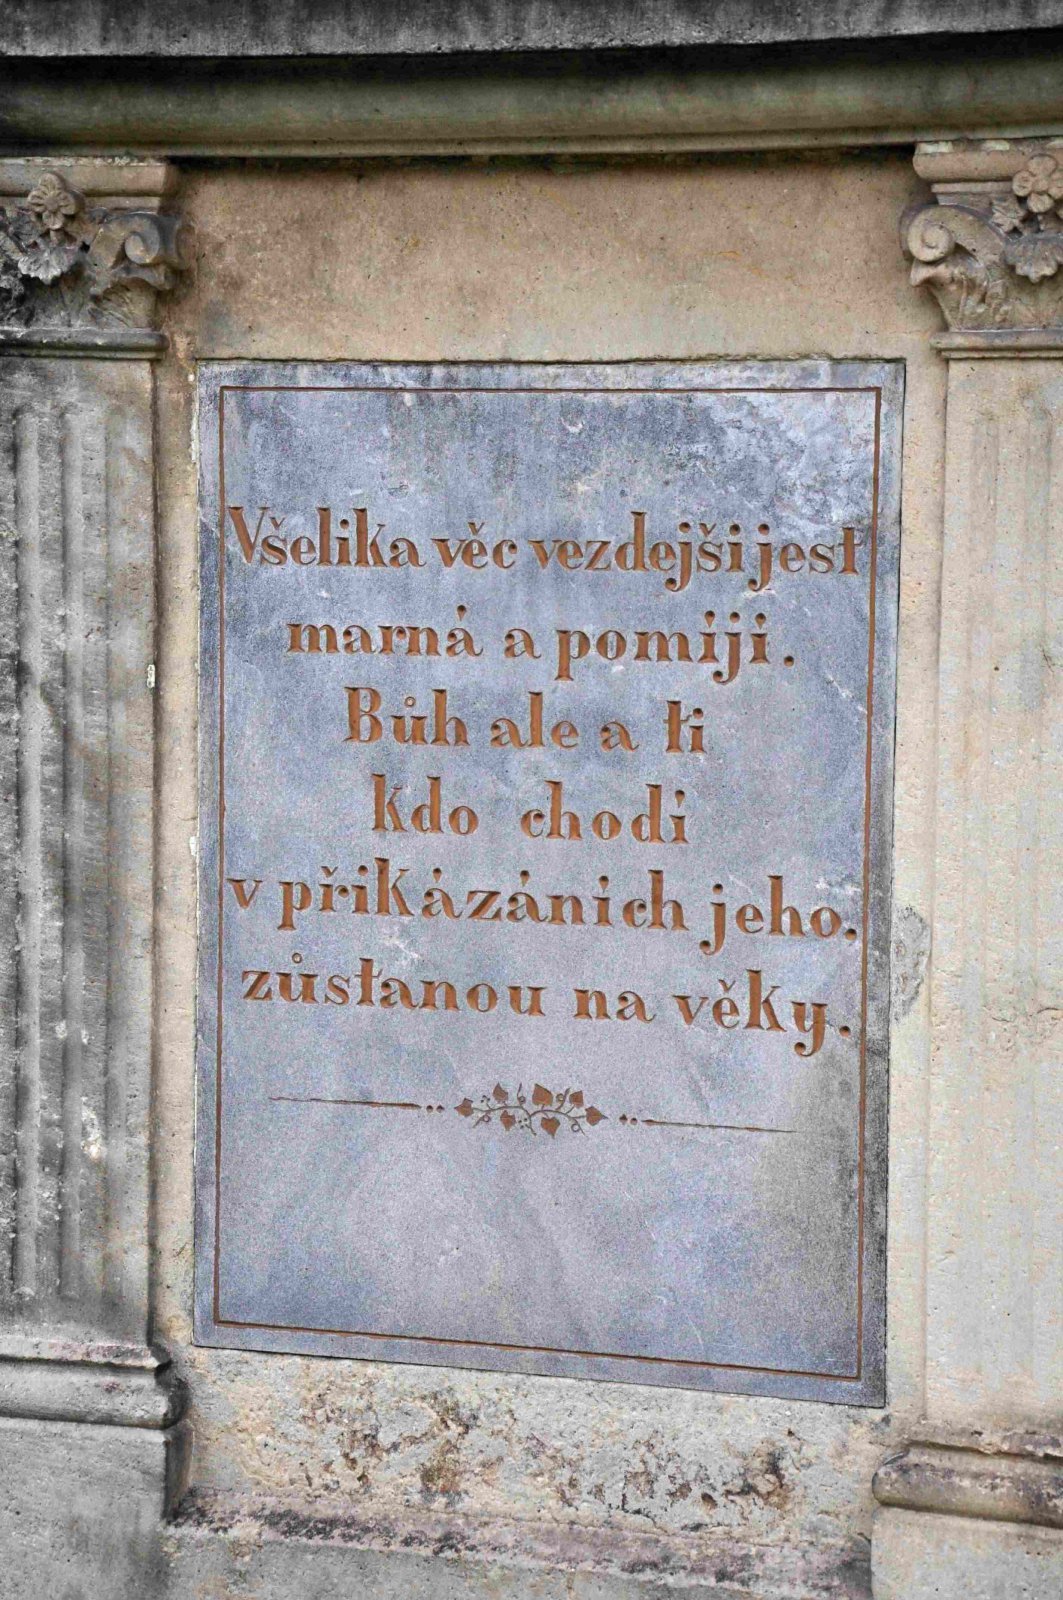 Všelika věc vezdejši jest
marná a pomíjí.
Bůh ale a ti
kdo chodí
v přikázáních jeho.
zůstanou na věky.